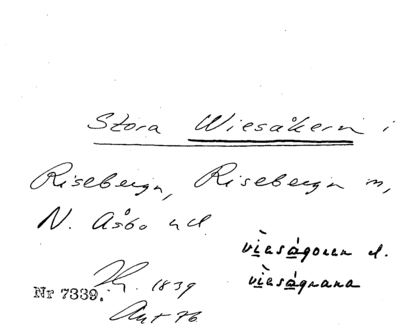 Stora Wiesåkern i
Riseberga, Riseberga s,
N. Åsbo hd.
vieságoren el.
vieságrana
1839
Nr 7339.
Akt 76